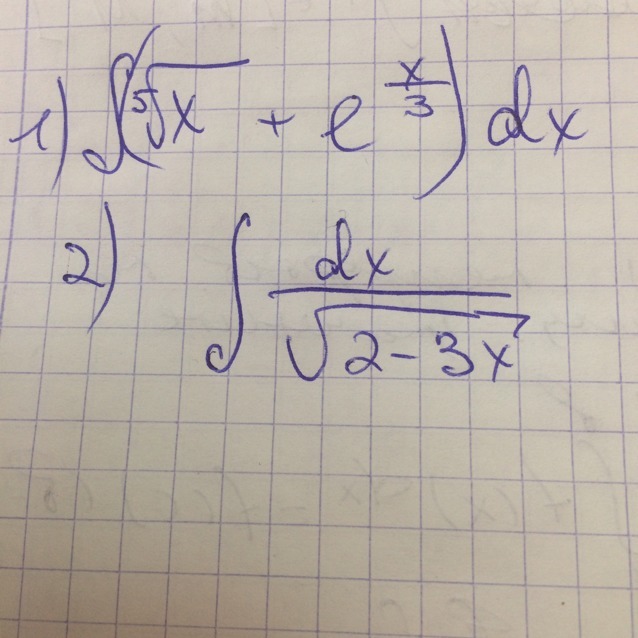 1) ∫(⁵√x + e^(x/3)) dx
2) ∫ dx/√(2-3x)